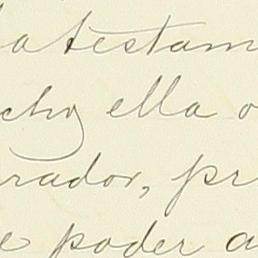 atestam
cho ella o
rador, pr
e poder a